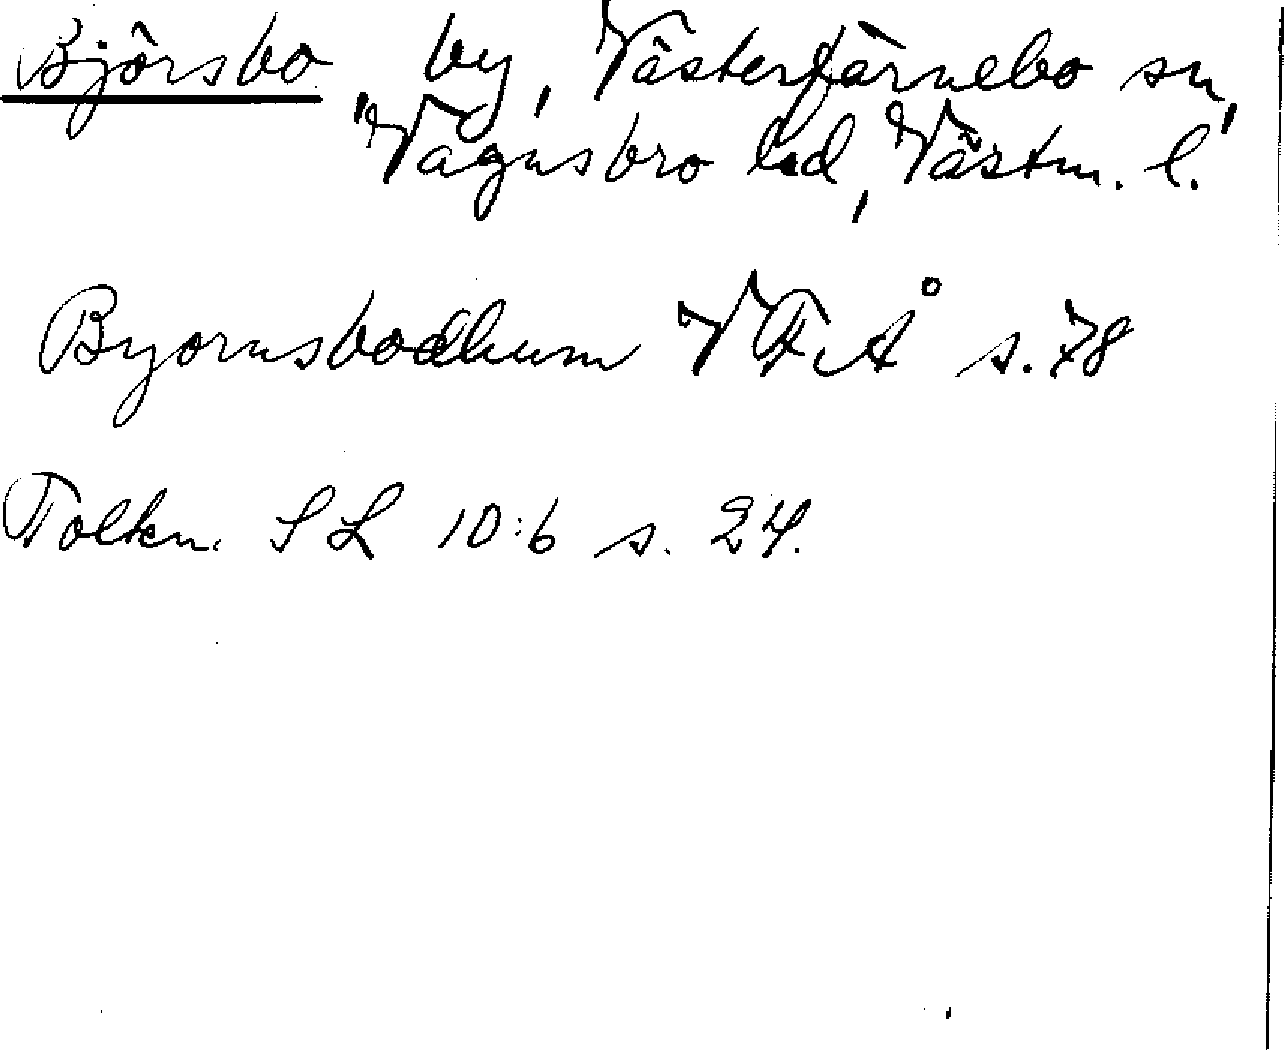 Björsbo, by, Västerfärnebo sn,
Vagnsbro hd, Västm. l.
Byornsbodhum VFÅ s. 78
Tolkn. SL 10:6 s. 24.